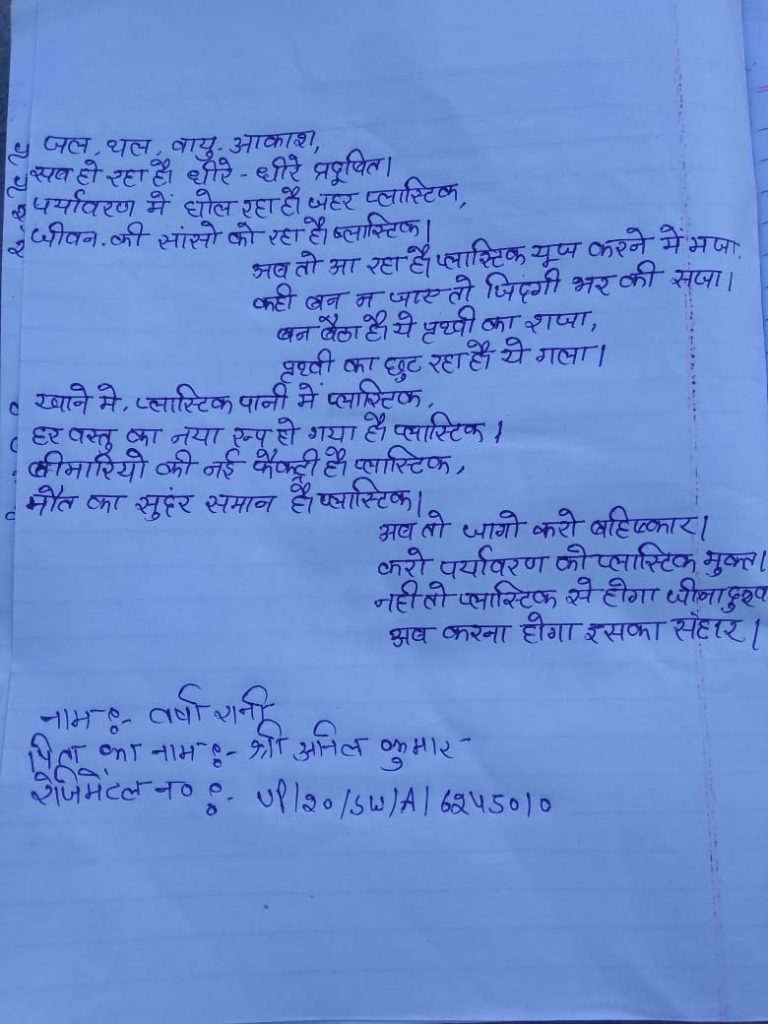 जल, थल, वायु, आकाश,
सब हो रहा है धीरे - धीरे प्रदूषित।
पर्यावरण में घोल रहा है जहर प्लास्टिक,
जीवन की सांसो को रहा है प्लास्टिक।
अब तो आ रहा है प्लास्टिक यूज करने में मजा,
कही बन न जाए तो जिंदगी भर की सजा।
बन बैठा है ये पृथ्वी का राजा,
पृथ्वी का घुट रहा है ये गला।
खाने मे, प्लास्टिक पानी में प्लास्टिक,
हर वस्तु का नया रूप हो गया है प्लास्टिक।
बीमारियो की नई फैक्ट्री है प्लास्टिक,
मौत का सुदंर समान है प्लास्टिक।
अब तो जागो करो बहिष्कार।
करो पर्यावरण को प्लास्टिक मुक्त।
नही तो प्लास्टिक से होगा जीना
अब करना होगा इसका संहार।
नाम :- वर्षा रानी
पिता का नाम :- श्री अनिल कुमार
रेजिमेंटल न० :- UP/20/SW/A/6245010